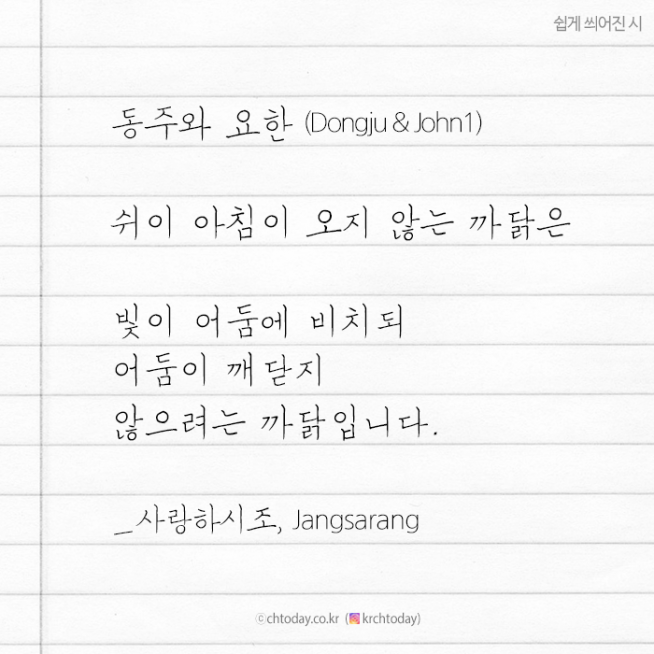 쉽게 씌어진 시
동주와 요한 (Dongju & John1)
쉬이 아침이 오지 않는 까닭은
빛이 어둠에 비치되
어둠이 깨닫지
않으려는 까닭입니다.
_사랑하시조, Jangsarang
ⓒchtoday.co.kr (krchtoday)